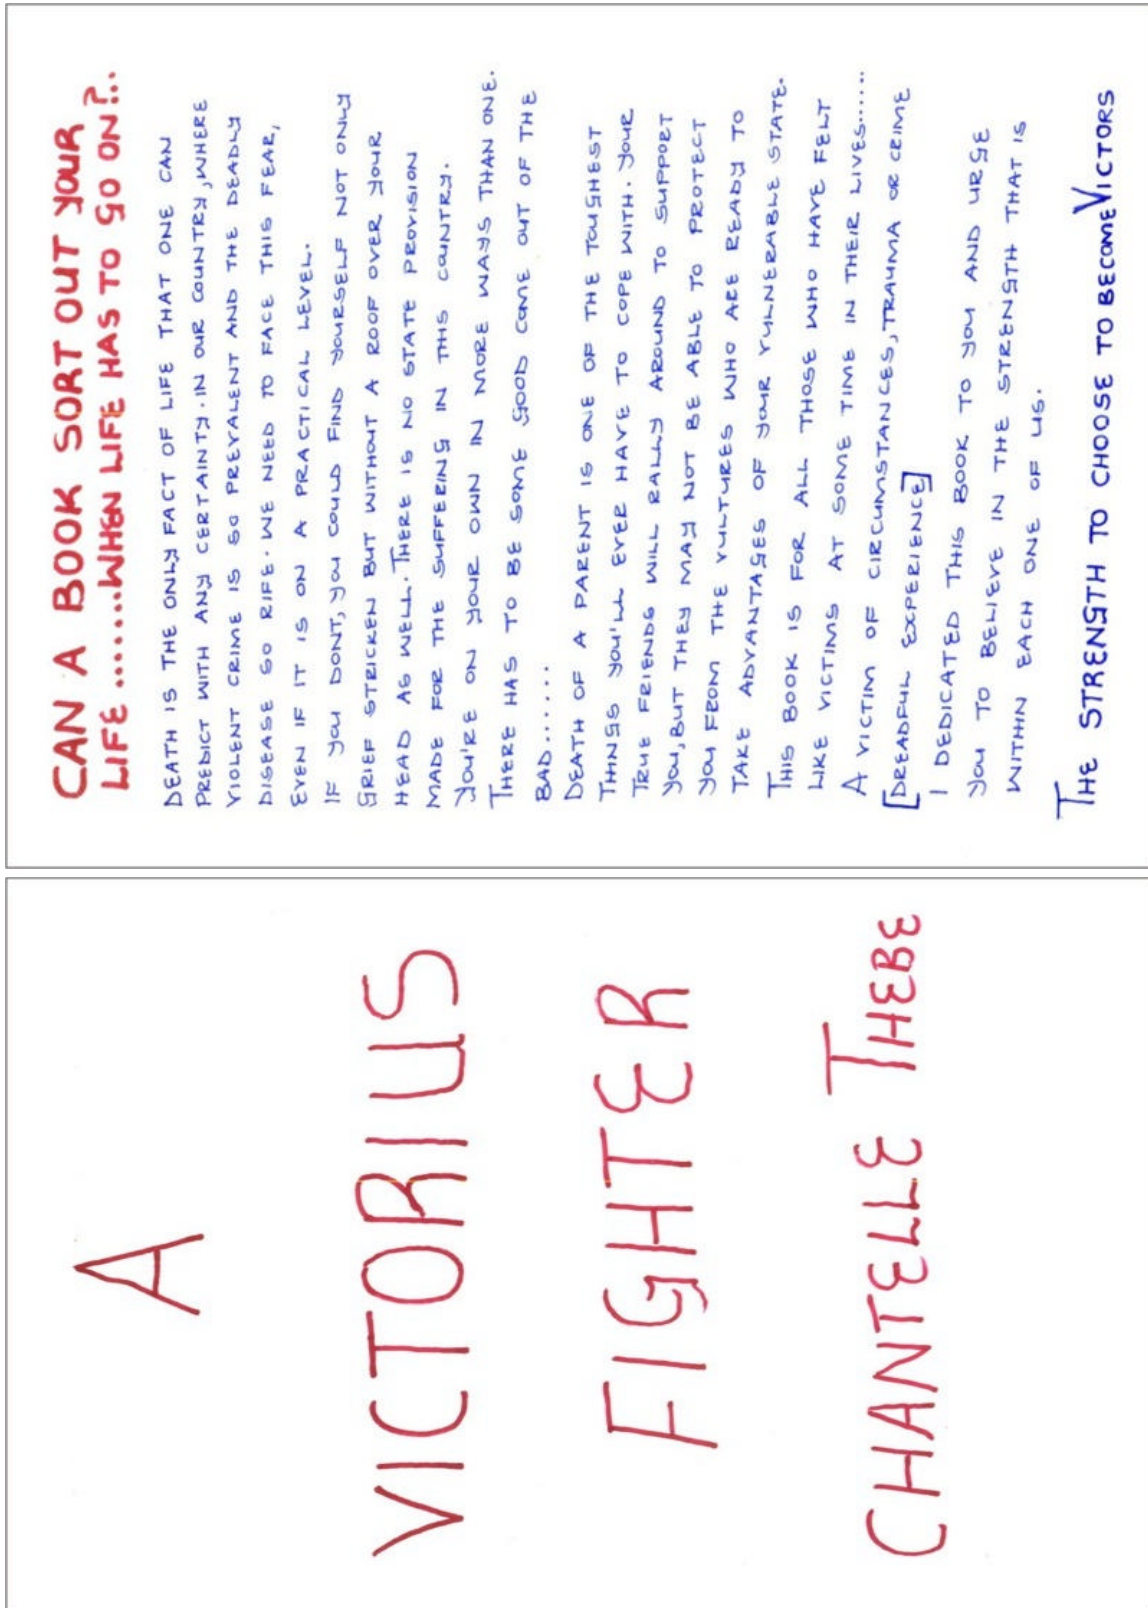 CAN A BOOK SORT OUT YOUR
LIFE.......WHEN LIFE HAS TO GO ON?..
DEATH IS THE ONLY FACT OF LIFE THAT ONE CAN
PREDICT WITH ANY CERTAINTY. IN OUR COUNTRY, WHERE
VIOLENT CRIME IS SO PREVALENT AND THE DEADLY
DISEASE SO RIFE. WE NEED TO FACE THIS FEAR,
EVEN IF IT IS ON A PRACTICAL LEVEL.
IF YOU DONT, YOU COULD FIND YOURSELF NOT ONLY
GRIEF STRICKEN BUT WITHOUT A ROOF OVER YOUR
HEAD AS WELL. THERE IS NO STATE PROVISION
MADE FOR THE SUFFERING IN THIS COUNTRY.
YOU'RE ON YOUR OWN IN MORE WAYS THAN ONE.
THERE HAS TO BE SOME GOOD COME OUT OF THE
BAD......
DEATH OF A PARENT IS ONE OF THE TOUGHEST
THINGS YOU'LL EVER HAVE TO COPE WITH. YOUR
TRUE FRIENDS WILL RALLY AROUND TO SUPPORT
YOU, BUT THEY MAY NOT BE ABLE TO PROTECT
YOU FROM THE VULTURES WHO ARE READY TO
TAKE ADVANTAGES OF YOUR VULNERABLE STATE.
THIS BOOK IS FOR ALL THOSE WHO HAVE FELT
LIKE VICTIMS AT SOME TIME IN THEIR LIVES......
A VICTIM OF CIRCUMSTANCES, TRAUMA OR CRIME
[DREADFUL EXPERIENCE]
I DEDICATED THIS BOOK TO YOU AND URGE
YOU TO BELIEVE IN THE STRENGTH THAT IS
WITHIN EACH ONE OF US.
THE STRENGTH TO CHOOSE TO BECOME VICTORS
A
VICTORIUS
FIGHTER
CHANTELLE THEBE